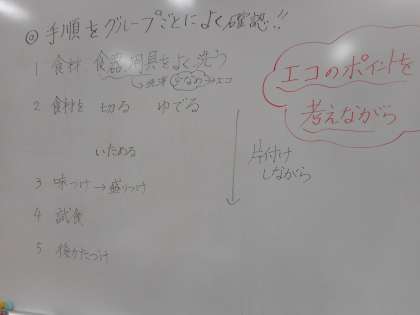 ◎ 手順をグループごとによく確認!!
1 食材 食器 用具をよく洗う
洗剤 少なめ エコ
2 食材を 切る ゆでる
いためる
3 味つけ→盛りつけ
4 試食
5 後かたづけ
片付け
しながら
エコのポイントを
考えながら